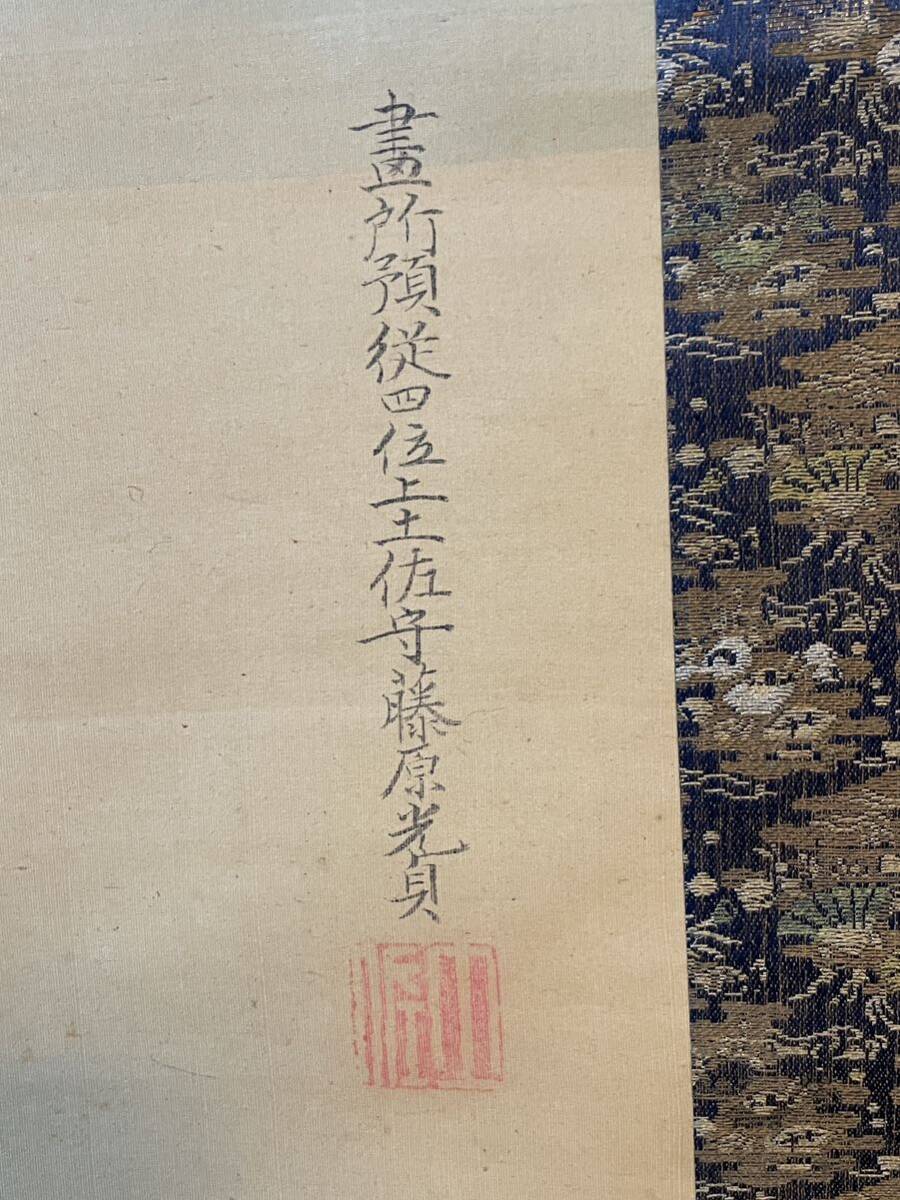 畫所預従四位上土佐守藤原光貞